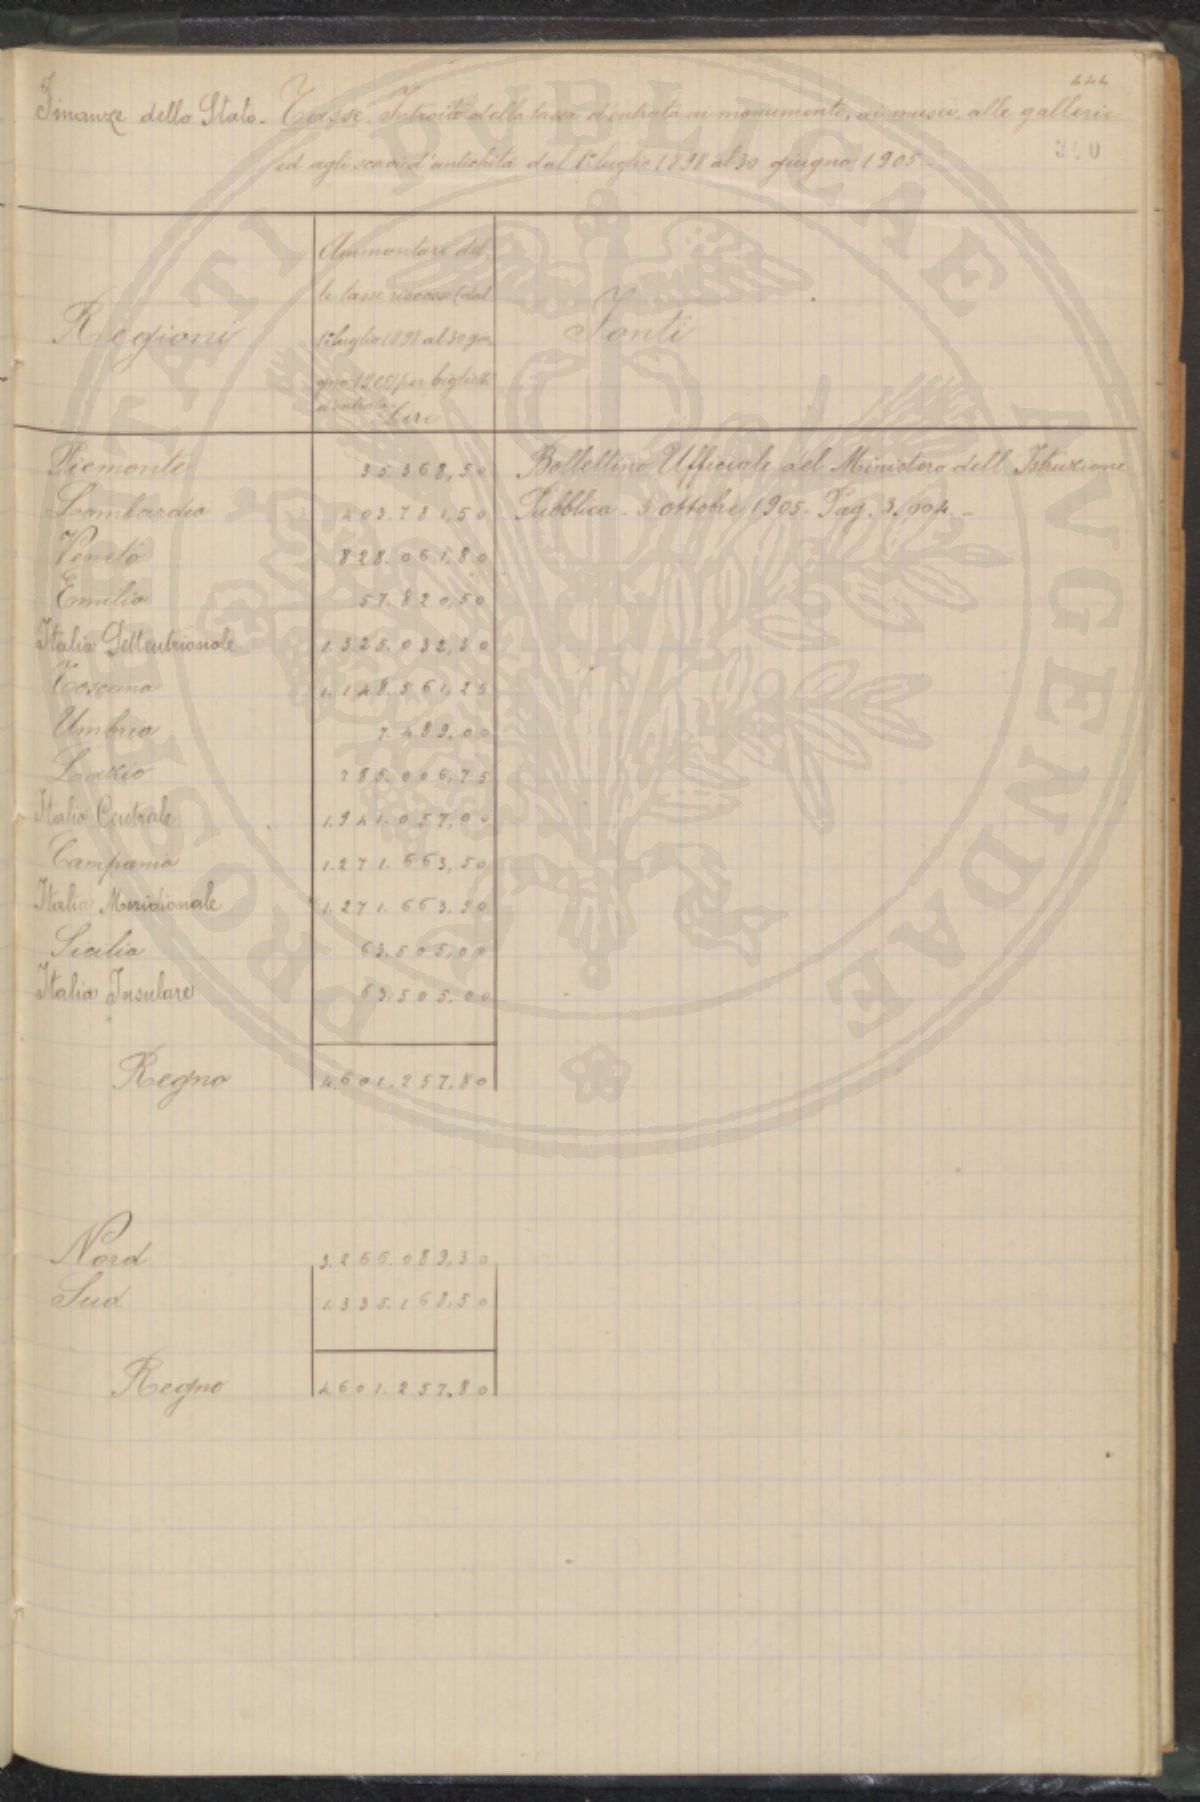 444
Finanze dello Stato. Tasse. Introito della tassa d'entrata ai monumenti, ai musei, alle gallerie
340
ed agli scavi d'antichità dal 1° luglio 1898 al 30 giugno 1905.
Regioni
Ammontare del-
le tasse riscosse (dal
1° luglio 1898 al 30 giu-
gno 1905) per biglietti
d'entrata
Lire
Fonti
Piemonte 35.368,50 Bollettino Ufficiale del Ministero dell'Istruzione
Lombardia 403.781,50 Pubblica - 5 ottobre 1905. Pag. 3.004.
Veneto 828.061,80
Emilia 57.820,50
Italia Settentrionale 1.325.032,30
Toscana 1.148.561,25
Umbria 7.489,00
Lazio 785.006,75
Italia Centrale 1.941.057,00
Campania 1.271.663,50
Italia Meridionale 1.271.663,50
Sicilia 63.505,00
Italia Insulare 63.505,00
Regno 4.601.257,80
Nord 3.266.089,30
Sud 1.335.168,50
Regno 4.601.257,80
PROSPERITATI PUBLICAE AVGENDAE